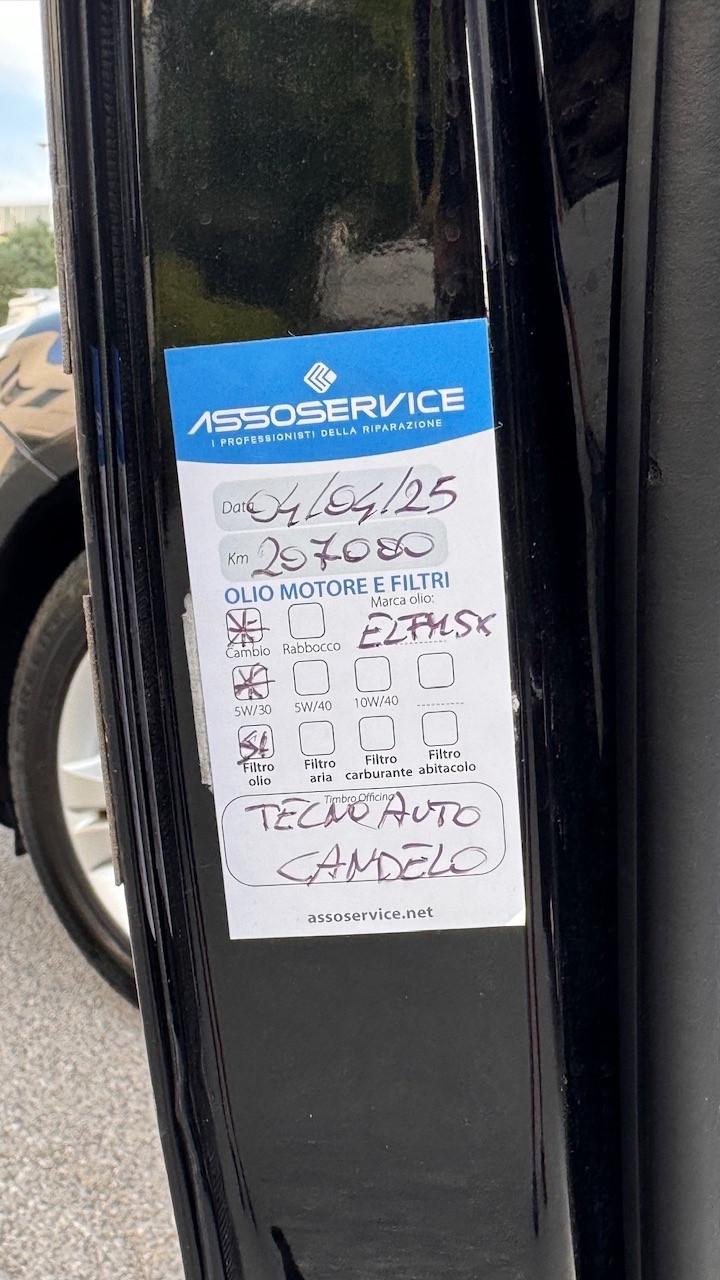 ASSOSERVICE
I PROFESSIONISTI DELLA RIPARAZIONE
Data 04/04/25
Km 207080
OLIO MOTORE E FILTRI
Marca olio:
Cambio Rabbocco
5W/30 5W/40 10W/40
SI
Filtro olio Filtro aria Filtro carburante Filtro abitacolo
Timbro Officina
TECNO AUTO
CANDELO
assoservice.net